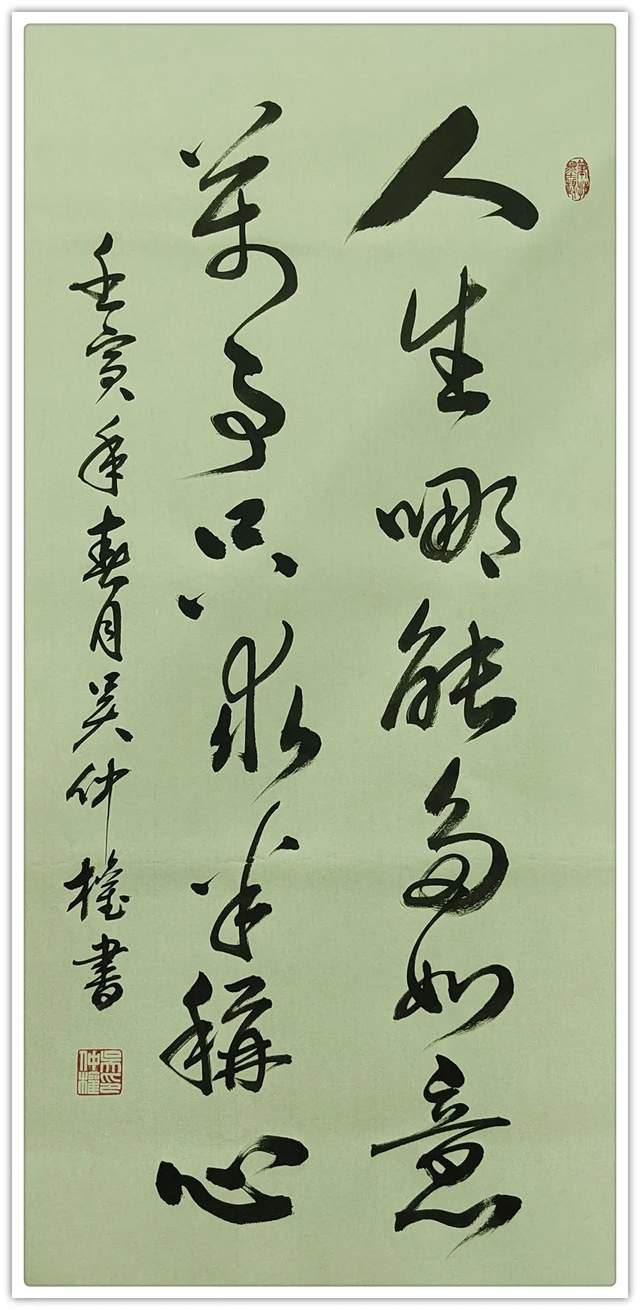 人生哪能多如意
萬事只求半稱心
壬寅年春月吴仲權書